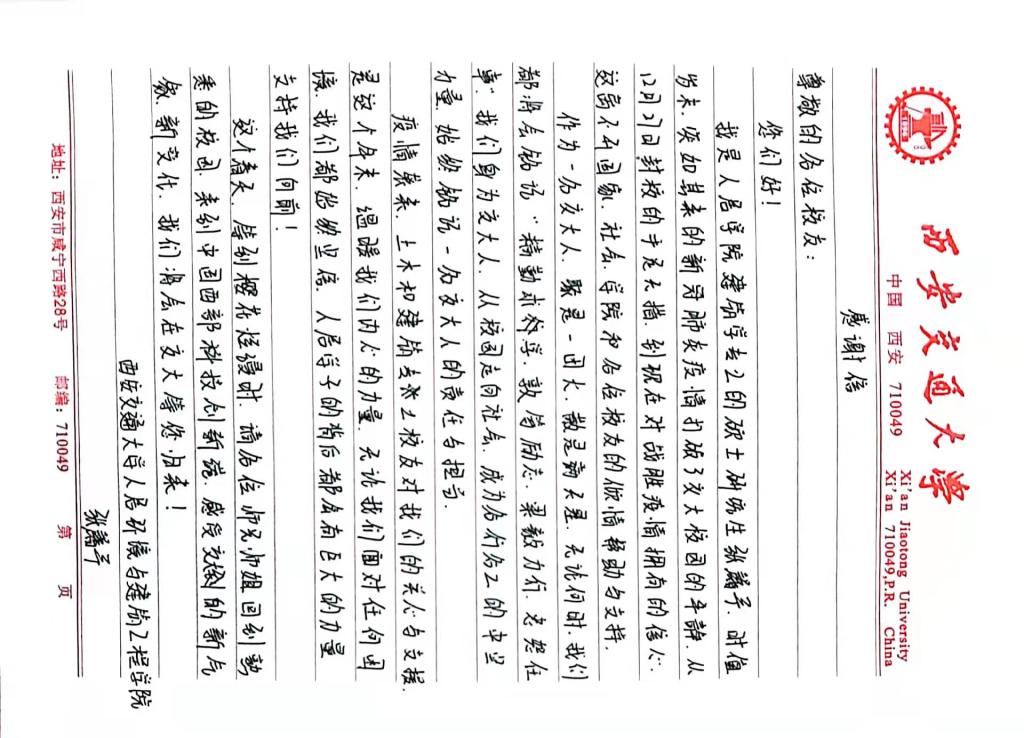 西安交通大学
中国 西安 710049
Xi'an Jiaotong University
Xi'an 710049,P.R. China
感谢信
尊敬的各位校友：
您们好！
我是人居学院建筑学专业的硕士研究生张露予，时值
岁末，突如其来的新冠肺炎疫情打破了交大校园的平静，从
12月21日封校的手足无措，到现在对战胜疫情拥有的信心，
这离不开国家、社会、学院和各位校友的倾情帮助与支持。
作为一名交大人，聚是一团火，散是满天星，无论何时，我们
都将会铭记“精勤求学，敦笃励志，果毅力行，忠恕任
事”，我们身为交大人，从校园走向社会，成为各行各业的中坚
力量，始终铭记一名交大人的责任与担当。
疫情袭来，土木和建筑专业校友对我们的关心与支援，
是这个年末，温暖我们内心的力量，无论我们面对任何困
境，我们都始终坚信，人居学子的背后都会有巨大的力量
支持我们向前！
这个春天，等到樱花烂漫时，请各位师兄师姐回到熟
悉的校园，来到中国西部科技创新港，感受交大的新气
象、新交代，我们将会在交大等你归来！
西安交通大学人居环境与建筑工程学院
张露予
地址：西安市咸宁西路28号 邮编：710049 第 页